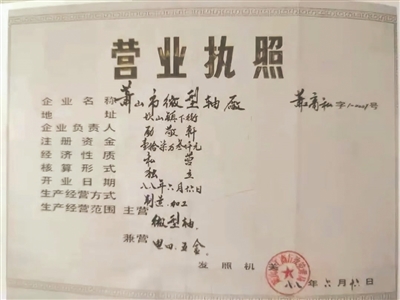 营业执照
企业名称 萧山市微型轴厂 萧商私字 号
地址 坎山镇下街
企业负责人
注册资金 壹拾柒万叁仟元
经济性质 私营
核算形式 独立
开业日期 八八年六月廿八日
生产经营方式 制造、加工
生产经营范围 主营 微型轴
兼营 电四、五金
发照机
八八年六月廿八